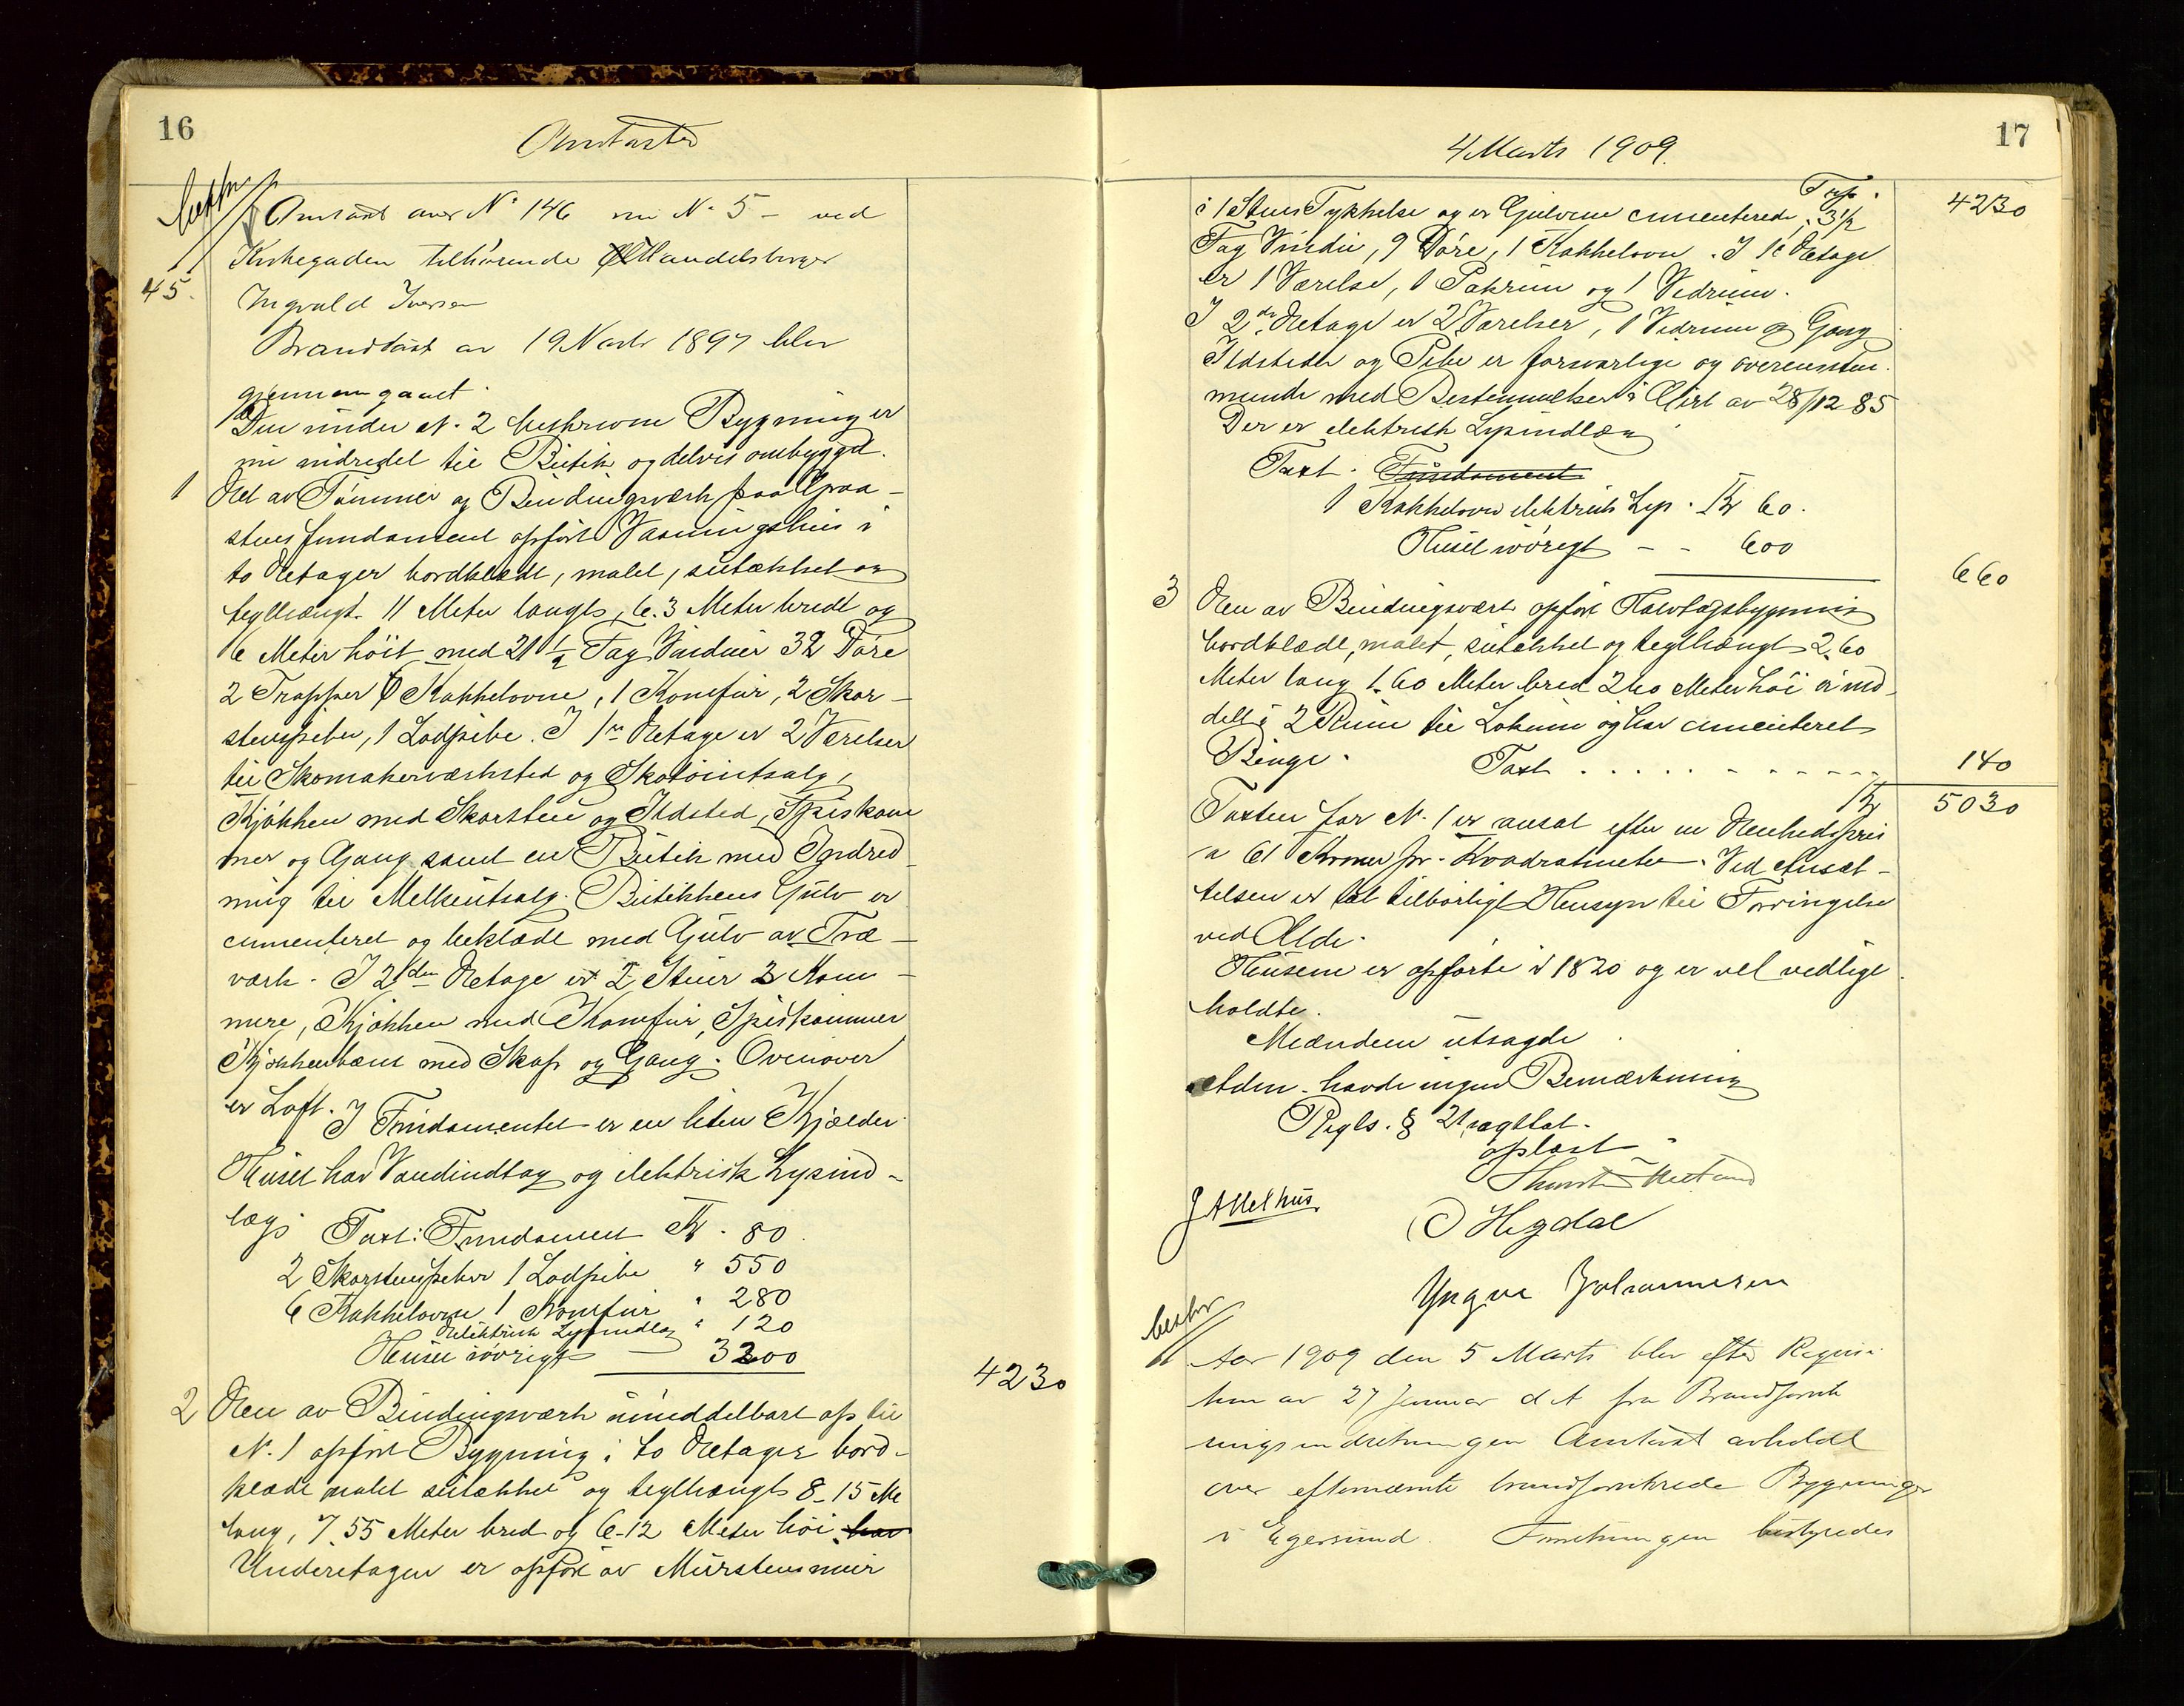 16
Omtaxted
Omtaxt over No 146 nu No 5 - ved
Kirkegaden tilhørende Handelsborger
45.
Ingvald Iversen
Brandtaxt av 19 Marts 1897 blev
gjennemgaaet.
Den under N. 2 beskrevne Bygning er
nu indredet til Butik og delvis ombygget.
1 Et av Tømmer og Bindingsverk paa Graa-
stens fundament opført Vaaningshus i
to Etager bordklædt, malet, sutækket og
teglhængt. 11 Meter langt, 6.3 Meter bredt og
6 Meter høit med 21 1/2 Fag Vinduer 32 Døre
2 Trapper 6 Kakkelovne, 1 Komfur, 2 Skor-
stenspiber, 1 Lodpibe. I 1ste Etage er 2 Værelser
til Skomakerværksted og Skotøiutsalg,
Kjøkken med Skorsten og Ildsted, Spiskam
mer og Gang samt en Butik med Indred-
ning til Melkeutsalg. Butikkens Gulv er
cementeret og beklædt med Gulv av Træ-
værk. I 2den Etage er 2 Stuer 3 Kam-
mere, Kjøkken med Komfur, Spiskammer
Kjøkkenbænk med Skap og Gang. Ovenover
er Loft. I Fundamentet er en liten Kjælder.
Huset har Vandindlag og elektrisk Lysind-
læg. Taxt: Fundament Kr. 80.
2 Skorstenspiber 1 Lodpibe " 550
6 Kakkelovne 1 Komfur " 280
Elektrisk Lysindlæg " 120
Huset iøvrigt — 3200
4230
2 Een av Bindingsværk umiddelbart op til
N. 1 opført Bygning i to Etager bord-
klædt malet sutækket og teglhængt 8.15 Me
lang, 7.55 Meter bred og 6.12 Meter høi har
Underetagen er opført av Murstensmur
17
4 Marts 1909.
i 1 Stens Tykkelse og er Gulvene cementerede, 3 1/2
Trap.
4230
Fag Vindu, 9 Døre, 1 Kakkelovn. I 1e Etage
er 1 Værelse, 1 Pakrum og 1 Vedrum.
I 2den Etage er 2 Værelser, 1 Vedrum og Gang
Ildsteder og Pibe er forsvarlige og overensstem-
mende med Bestemmelser i Cirk av 28/12 85
Der er elektrisk Lysindlæg
Taxt. Fundament
1 Kakkelovn elektrisk Lys. Kr 60.
Huset iøvrigt - - 600
660
3 Een av Bindingsværk opført Halvtagsbygning
bordklædt, malet, sutækket og teglhængt 2.60
Meter lang 1.60 Meter bred 2.60 Meter høi er ind-
delt i 2 Rum til Lokum og har cementeret
Binge. Taxt . . . . . 140
Kr 5030
Taxten for N. 1 er ansat efter en Enhedspris
a 61 Kroner pr. Kvadratmeter. Ved Ansæt-
telsen er tat tilbørligt Hensyn til Forringelse
ved Ælde.
Husene er opførte i 1820 og er vel vedlige
holdte.
Mændene utsagde
Adm. havde ingen Bemærkning
Regls. § 21 iagttat.
oplæst
J A Melhus
O Hegdal
Yngve Johannesen
Aar 1909 den 5 Marts blev efter Rekvisi
tion av 27 Januar d A fra Brandforsik
ringsindretningen Omtaxt avholdt
over efternævnte brandforsikrede Bygninger
i Egersund. Forretningen bestyredes